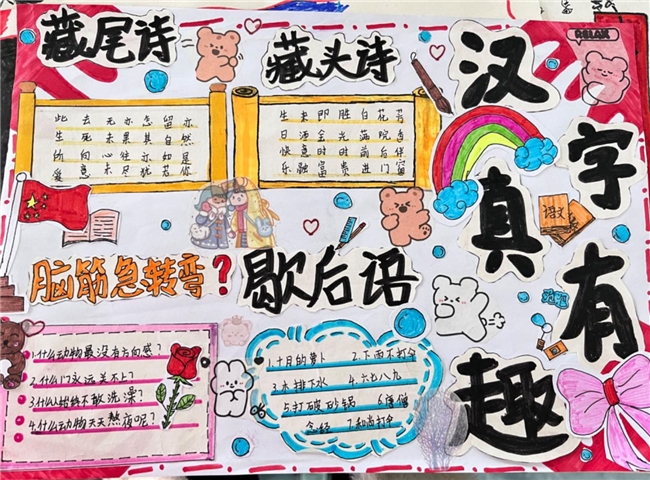 藏尾诗
藏头诗
汉字真有趣
RELAX
此去无亦怎留亦
生死未果其自然
心往亦如是
爱意未尽犹你
生来即胜百花芳
日洒金光满院香
快意时时前后伴
乐融富贵进门窗
语文
脑筋急转弯?
歇后语
1.什么动物最没有方向感?
2.什么门永远关不上?
3.什么人始终不敢洗澡?
4.什么动物天天熬夜呢?
1.十月的萝卜 2.下雨不打伞
3.木排下水 4.六七八九
5打破砂锅 6.唐僧
念经 7.和尚打伞